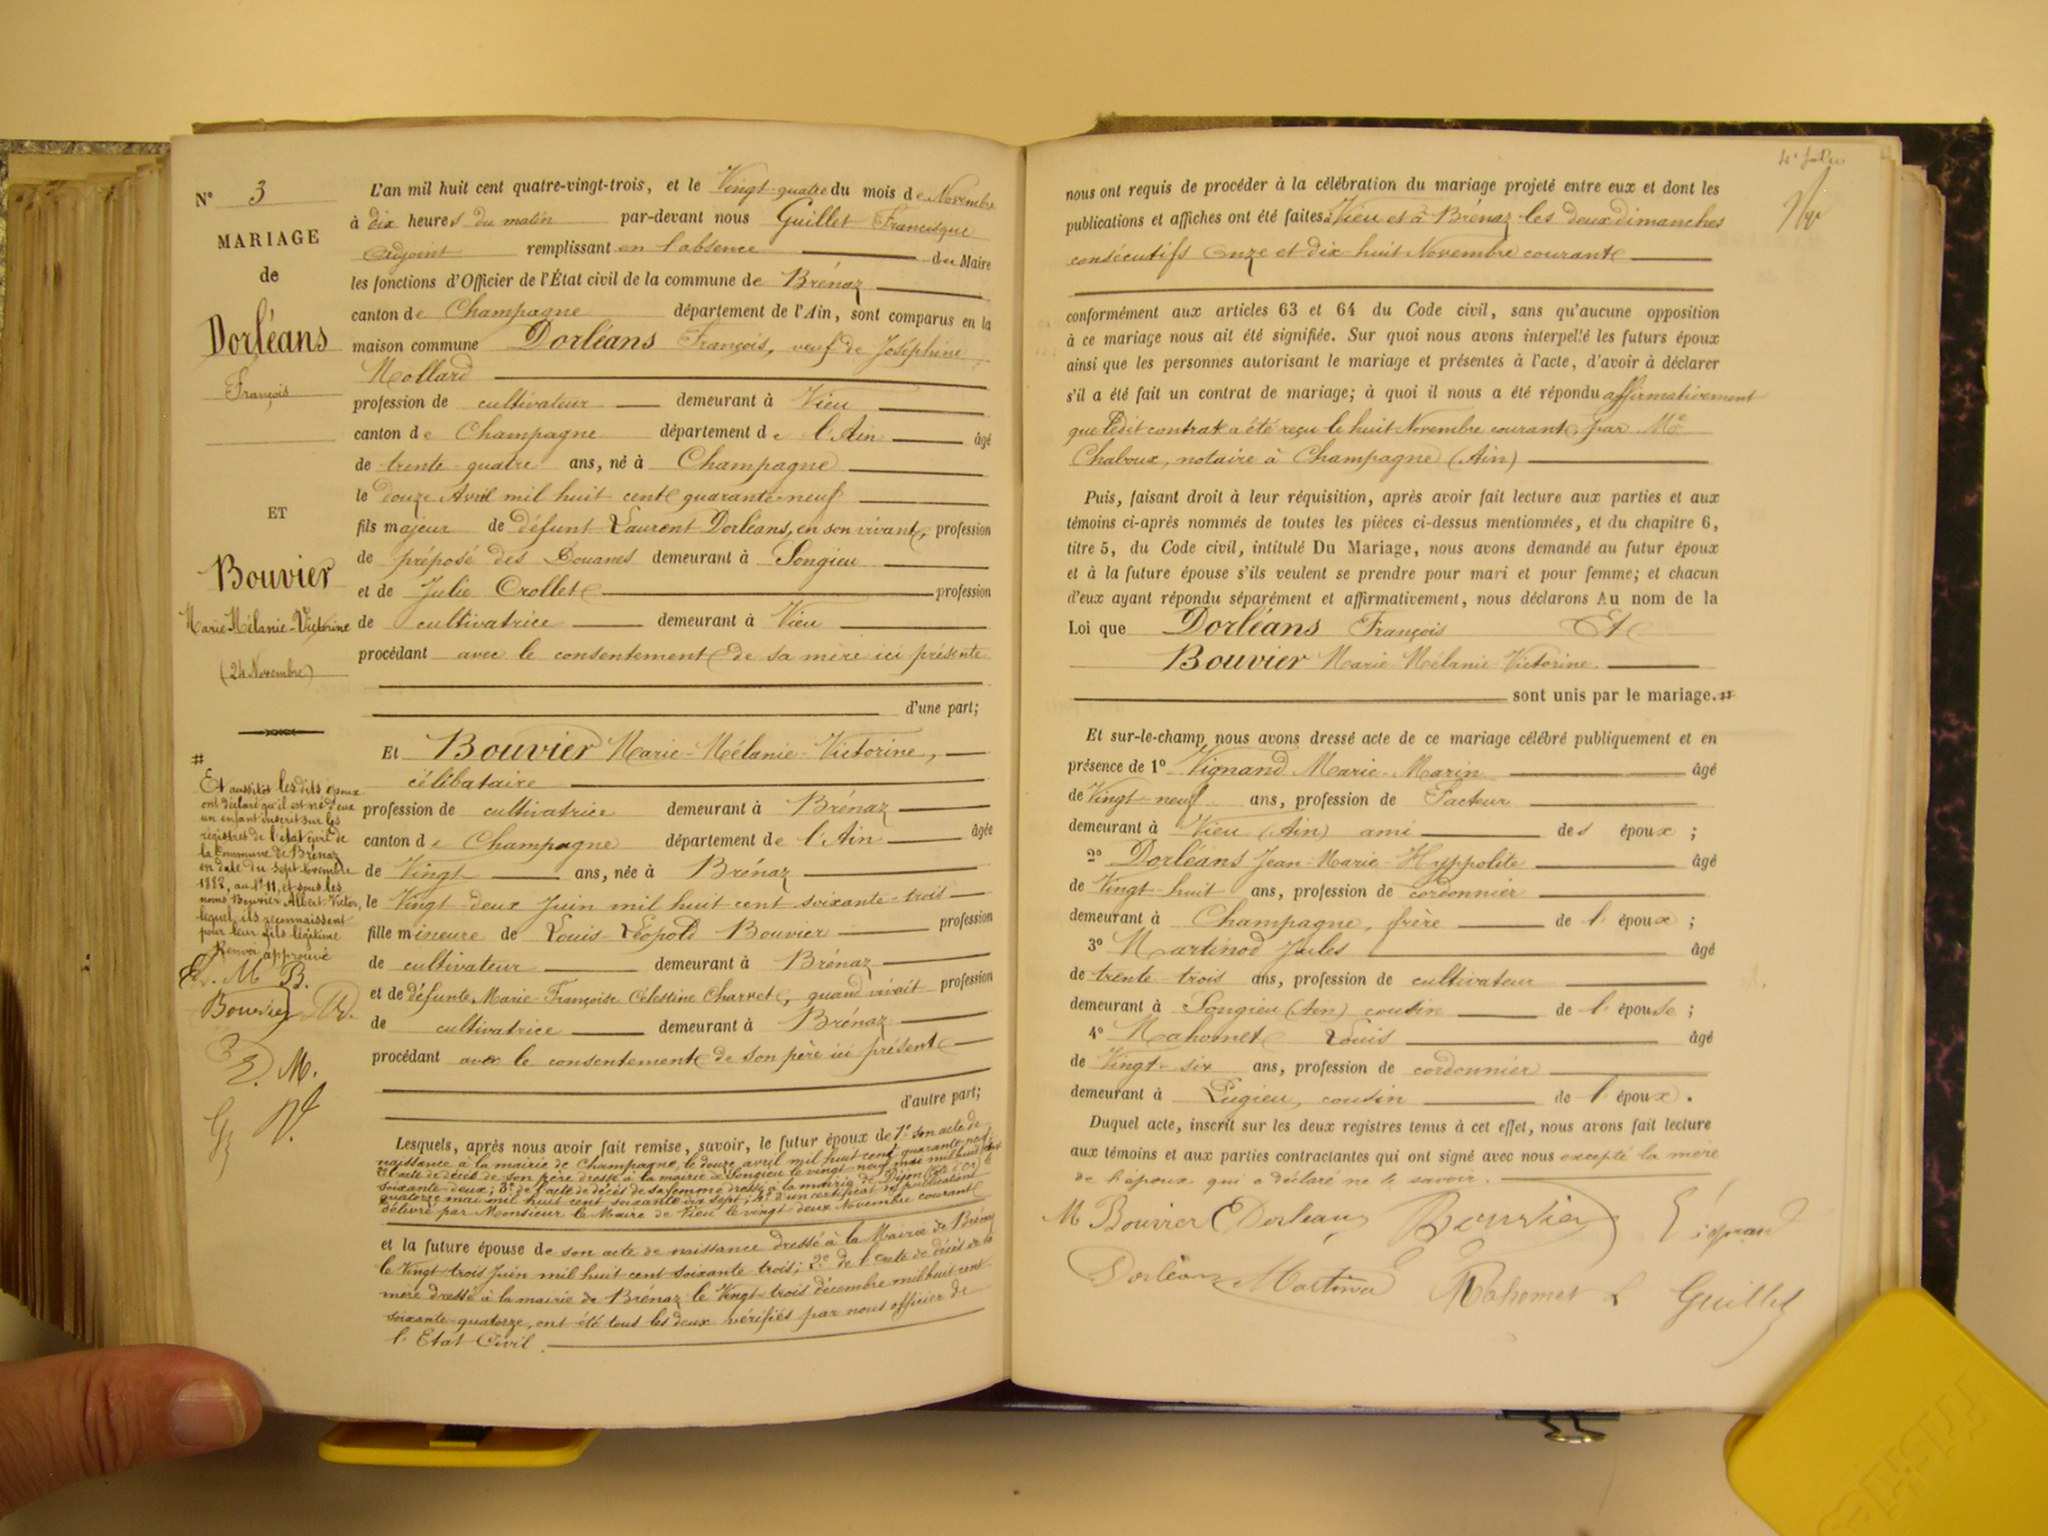 N° 3
MARIAGE
de
Dorléans
François
ET
Bouvier
Marie-Mélanie-Victorine
(24 Novembre)
#
Et aussitôt les dits époux
ont déclaré qu'il est né d'eux
un enfant inscrit sur les
registres de l'état civil de
la commune de Brénaz
en date du sept
au N° 11, et sous les
noms Bouvier Albert-Victor,
lequel ils reconnaissent
pour leur fils légitime
Renvoi approuvé
M B.
Bouvier
D. M.
L'an mil huit cent quatre-vingt-trois, et le Vingt-quatre du mois de Novembre
à dix heures du matin par-devant nous Guillet Francisque
adjoint remplissant en l'absence du Maire
les fonctions d'Officier de l'État civil de la commune de Brénaz
canton de Champagne département de l'Ain, sont comparus en la
maison commune Dorléans François, veuf de Joséphine
Mollard
profession de cultivateur demeurant à Vieu
canton de Champagne département de l'Ain âgé
de trente-quatre ans, né à Champagne
le douze Avril mil huit cent quarante-neuf
fils majeur de défunt Laurent Dorléans, en son vivant, profession
de préposé des Douanes demeurant à Songieu
et de Julie Crollet profession
de cultivatrice demeurant à Vieu
procédant avec le consentement de sa mère ici présente
d'une part;
Et Bouvier Marie-Mélanie-Victorine,
célibataire
profession de cultivatrice demeurant à Brénaz
canton de Champagne département de l'Ain âgée
de Vingt ans, née à Brénaz
le Vingt-deux Juin mil huit cent soixante-trois
fille mineure de Louis-Léopold Bouvier profession
de cultivateur demeurant à Brénaz
et de défunte Marie-Françoise Célestine Charvet, quand vivait profession
de cultivatrice demeurant à Brénaz
procédant avec le consentement de son père ici présent
d'autre part;
Lesquels, après nous avoir fait remise, savoir, le futur époux de 1° son acte de
naissance à la mairie de Champagne le douze avril mil huit cent quarante-neuf;
de l'acte de décès de son père dressé à la mairie de Songieu le vingt-neuf mai mil huit cent
soixante-deux; 3° de l'acte de décès de sa femme dressé à la mairie de Dijon (Côte d'Or) le
quatorze mai mil huit cent soixante dix sept; 4° d'un certificat de publication
délivré par Monsieur le Maire de Vieu le vingt-deux Novembre courant
et la future épouse de son acte de naissance dressé à la Mairie de Brénaz
le Vingt-trois Juin mil huit cent soixante trois; 2° de l'acte de décès de sa
mère dressé à la mairie de Brénaz le Vingt-trois décembre mil huit cent
soixante-quatorze, ont été tous les deux vérifiés par nous officier de
l'Etat Civil.
nous ont requis de procéder à la célébration du mariage projeté entre eux et dont les
publications et affiches ont été faites à Vieu et à Brénaz les deux dimanches
consécutifs onze et dix huit Novembre courant
conformément aux articles 63 et 64 du Code civil, sans qu'aucune opposition
à ce mariage nous ait été signifiée. Sur quoi nous avons interpellé les futurs époux
ainsi que les personnes autorisant le mariage et présentes à l'acte, d'avoir à déclarer
s'il a été fait un contrat de mariage; à quoi il nous a été répondu affirmativement
que ledit contrat a été reçu le huit Novembre courant, par Me
Chaboux, notaire à Champagne (Ain)
Puis, faisant droit à leur réquisition, après avoir fait lecture aux parties et aux
témoins ci-après nommés de toutes les pièces ci-dessus mentionnées, et du chapitre 6,
titre 5, du Code civil, intitulé Du Mariage, nous avons demandé au futur époux
et à la future épouse s'ils veulent se prendre pour mari et pour femme; et chacun
d'eux ayant répondu séparément et affirmativement, nous déclarons Au nom de la
Loi que Dorléans François Et
Bouvier Marie-Mélanie-Victorine.
sont unis par le mariage.#
Et sur-le-champ nous avons dressé acte de ce mariage célébré publiquement et en
présence de 1° Vignand Marie-Marin âgé
de Vingt-neuf ans, profession de Facteur
demeurant à Vieu (Ain) ami des époux;
2° Dorléans Jean-Marie-Hyppolite âgé
de Vingt-huit ans, profession de cordonnier
demeurant à Champagne, frère de l'époux;
3° Martinod Jules âgé
de trente-trois ans, profession de cultivateur
demeurant à Songieu (Ain) cousin de l'épouse;
4° Mahomet Louis âgé
de Vingt-six ans, profession de cordonnier
demeurant à Lugieu, cousin de l'époux.
Duquel acte, inscrit sur les deux registres tenus à cet effet, nous avons fait lecture
aux témoins et aux parties contractantes qui ont signé avec nous excepté la mère
de l'époux qui a déclaré ne le savoir.
M Bouvier Dorléans Bouvier
Dorléans Martinod Mahomet L Guillet